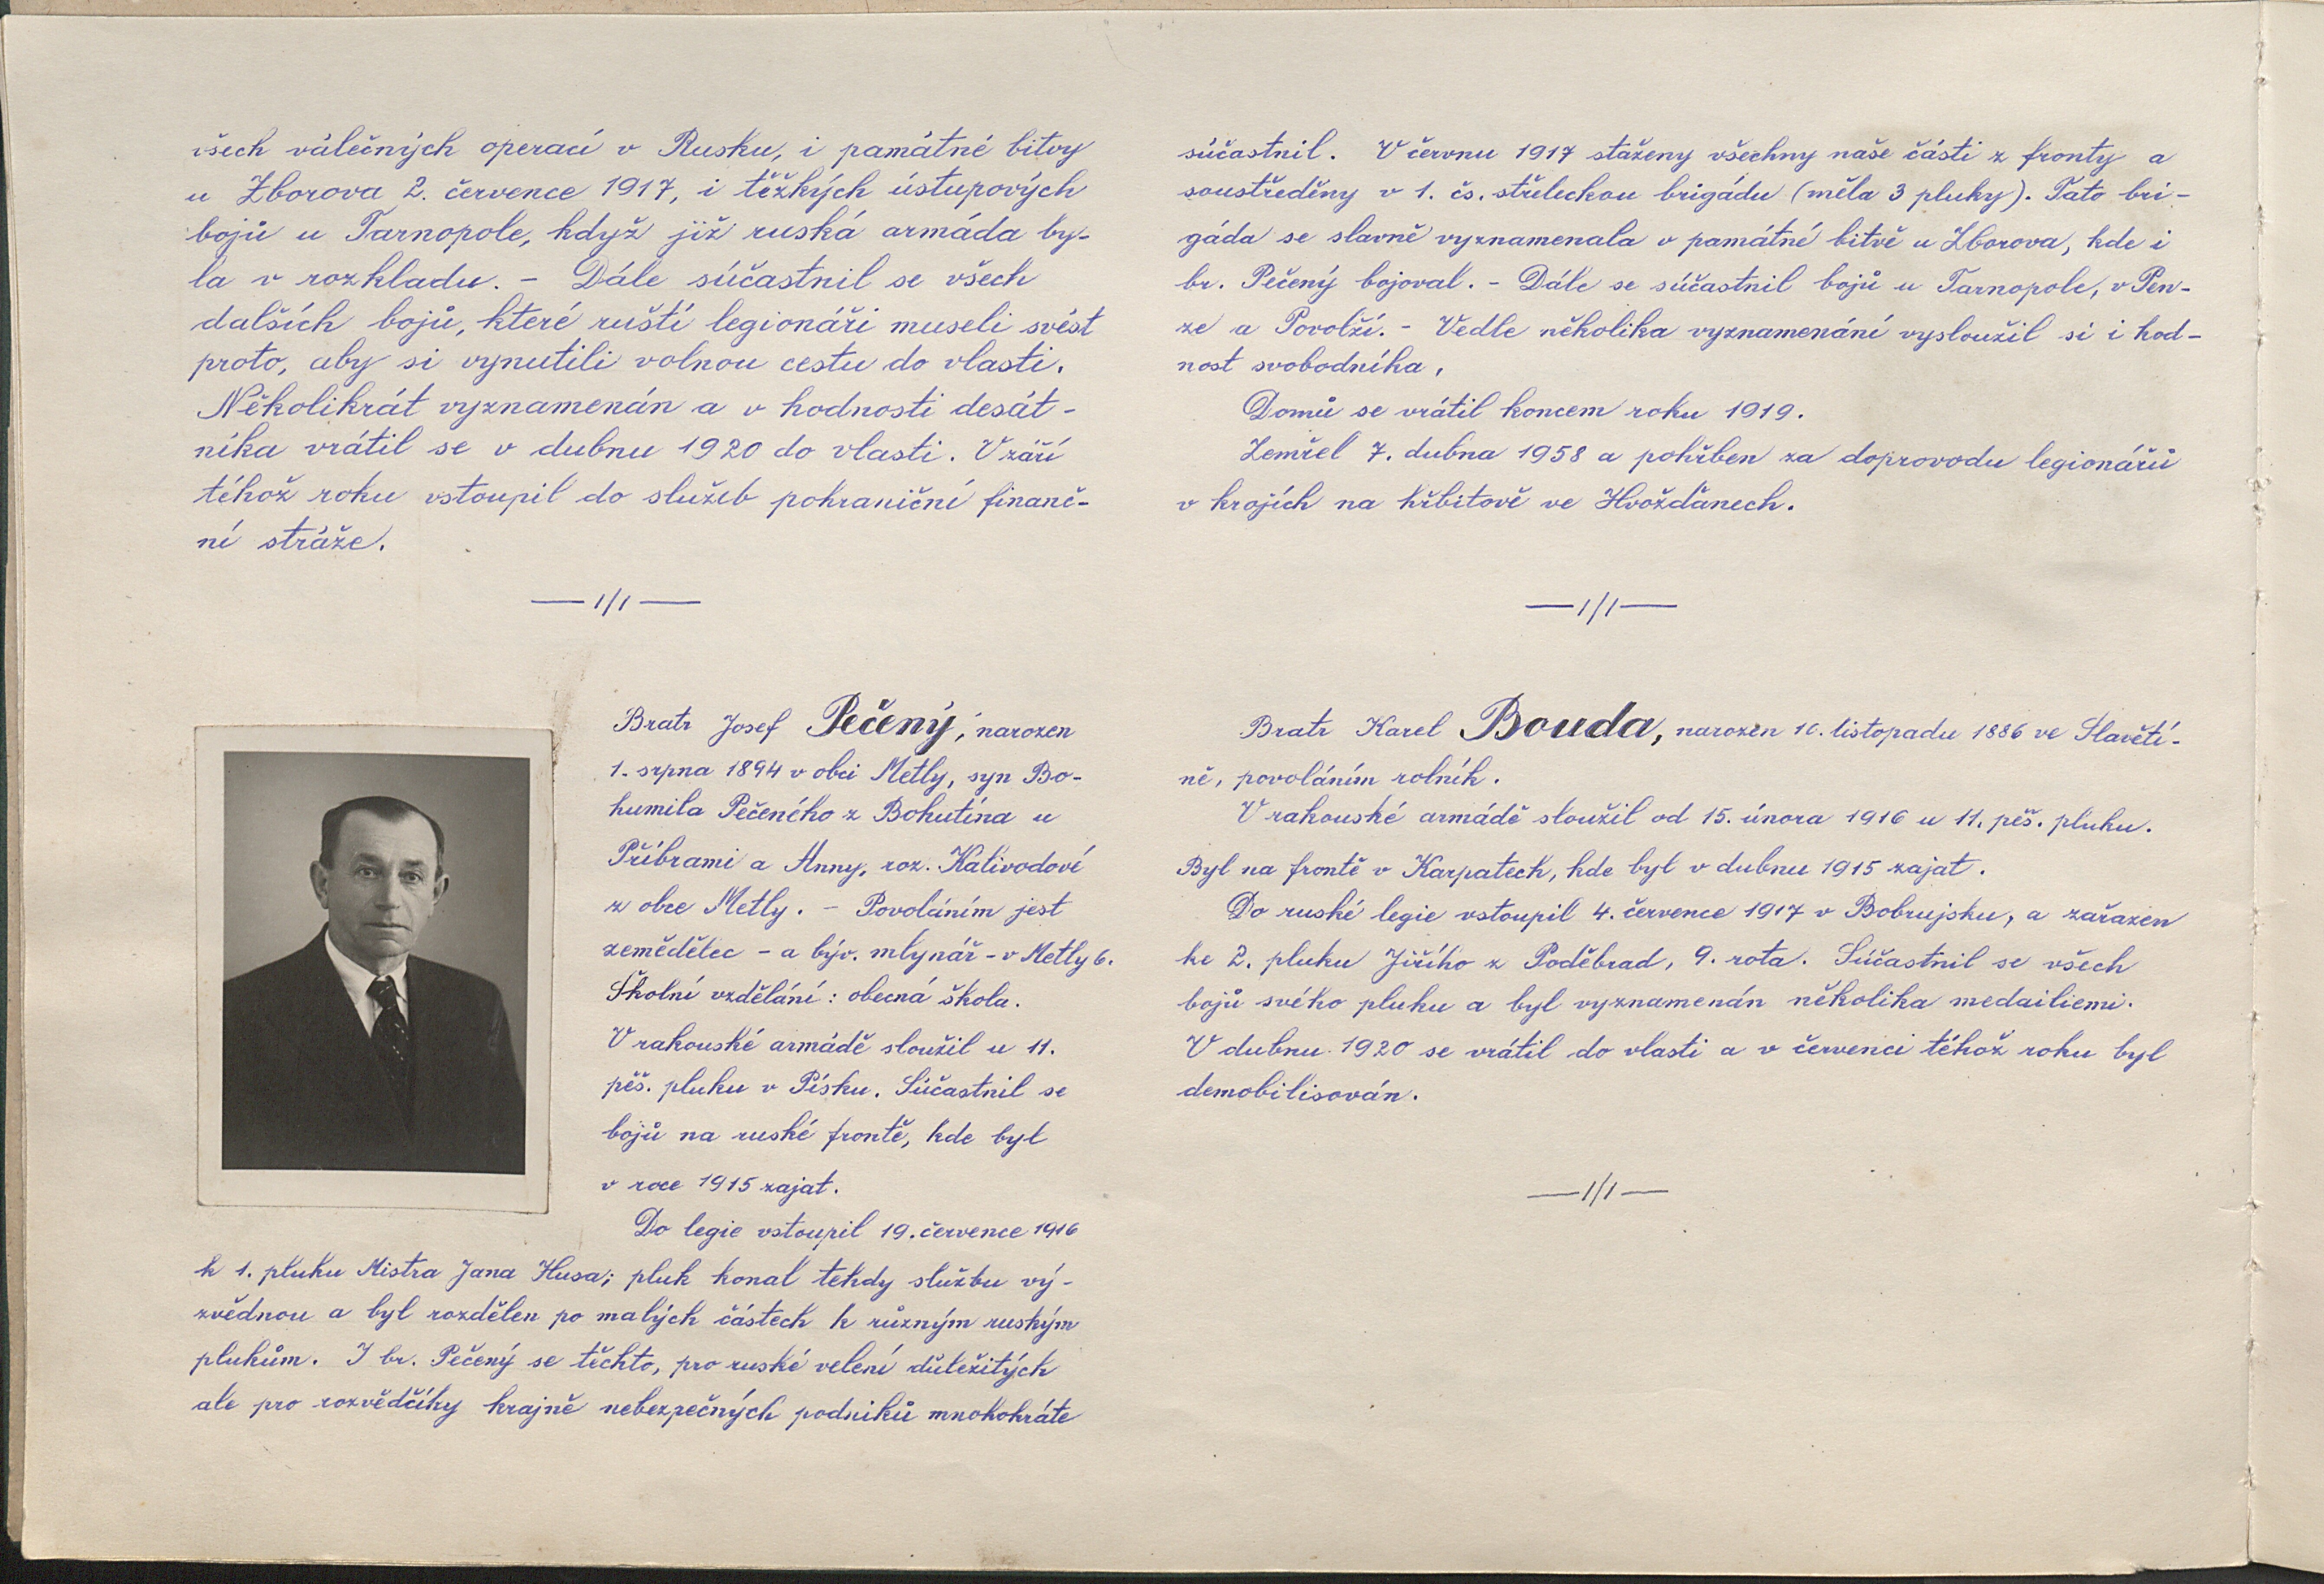 všech válečných operací v Rusku, i památné bitvy
u Zborova 2. července 1917, i těžkých ústupových
bojů u Tarnopole, když již ruská armáda by-
la v rozkladu. - Dále súčastnil se všech
dalších bojů, které ruští legionáři museli svést
proto, aby si vynutili volnou cestu do vlasti.
Několikrát vyznamenán a v hodnosti desát-
níka vrátil se v dubnu 1920 do vlasti. V září
téhož roku vstoupil do služeb pohraniční finanč-
ní stráže.
— 1/1 —
Bratr Josef Pečený, narozen
1. srpna 1894 v obci Metly, syn Bo-
humila Pečeného z Bohutína u
Příbrami a Anny, roz. Kalivodové
z obce Metly. - Povoláním jest
zemědělec - a býv. mlynář - v Metly 6.
Školní vzdělání: obecná škola.
V rakouské armádě sloužil u 11.
pěš. pluku v Písku. Súčastnil se
bojů na ruské frontě, kde byl
v roce 1915 zajat.
Do legie vstoupil 19. července 1916
k 1. pluku Mistra Jana Husa; pluk konal tehdy službu vý-
zvědnou a byl rozdělen po malých částech k různým ruským
plukům. I br. Pečený se těchto, pro ruské velení důležitých
ale pro rozvědčíky krajně nebezpečných podniků mnohokráte
súčastnil. V červnu 1917 staženy všechny naše části z fronty a
soustředěny v 1. čs. střeleckou brigádu (měla 3 pluky). Tato bri-
gáda se slavně vyznamenala v památné bitvě u Zborova, kde i
br. Pečený bojoval. - Dále se súčastnil bojů u Tarnopole, v Pen-
ze a Povolží. - Vedle několika vyznamenání vysloužil si i hod-
nost svobodníka.
Domů se vrátil koncem roku 1919.
Zemřel 7. dubna 1958 a pohřben za doprovodu legionářů
v krojích na hřbitově ve Hvožďanech.
— 1/1 —
Bratr Karel Bouda, narozen 10. listopadu 1886 ve Slavětí-
ně, povoláním rolník.
V rakouské armádě sloužil od 15. února 1916 u 11. pěš. pluku.
Byl na frontě v Karpatech, kde byl v dubnu 1915 zajat.
Do ruské legie vstoupil 4. července 1917 v Bobrujsku, a zařazen
ke 2. pluku Jiřího z Poděbrad, 9. rota. Súčastnil se všech
bojů svého pluku a byl vyznamenán několika medailiemi.
V dubnu 1920 se vrátil do vlasti a v červenci téhož roku byl
demobilisován.
— 1/1 —